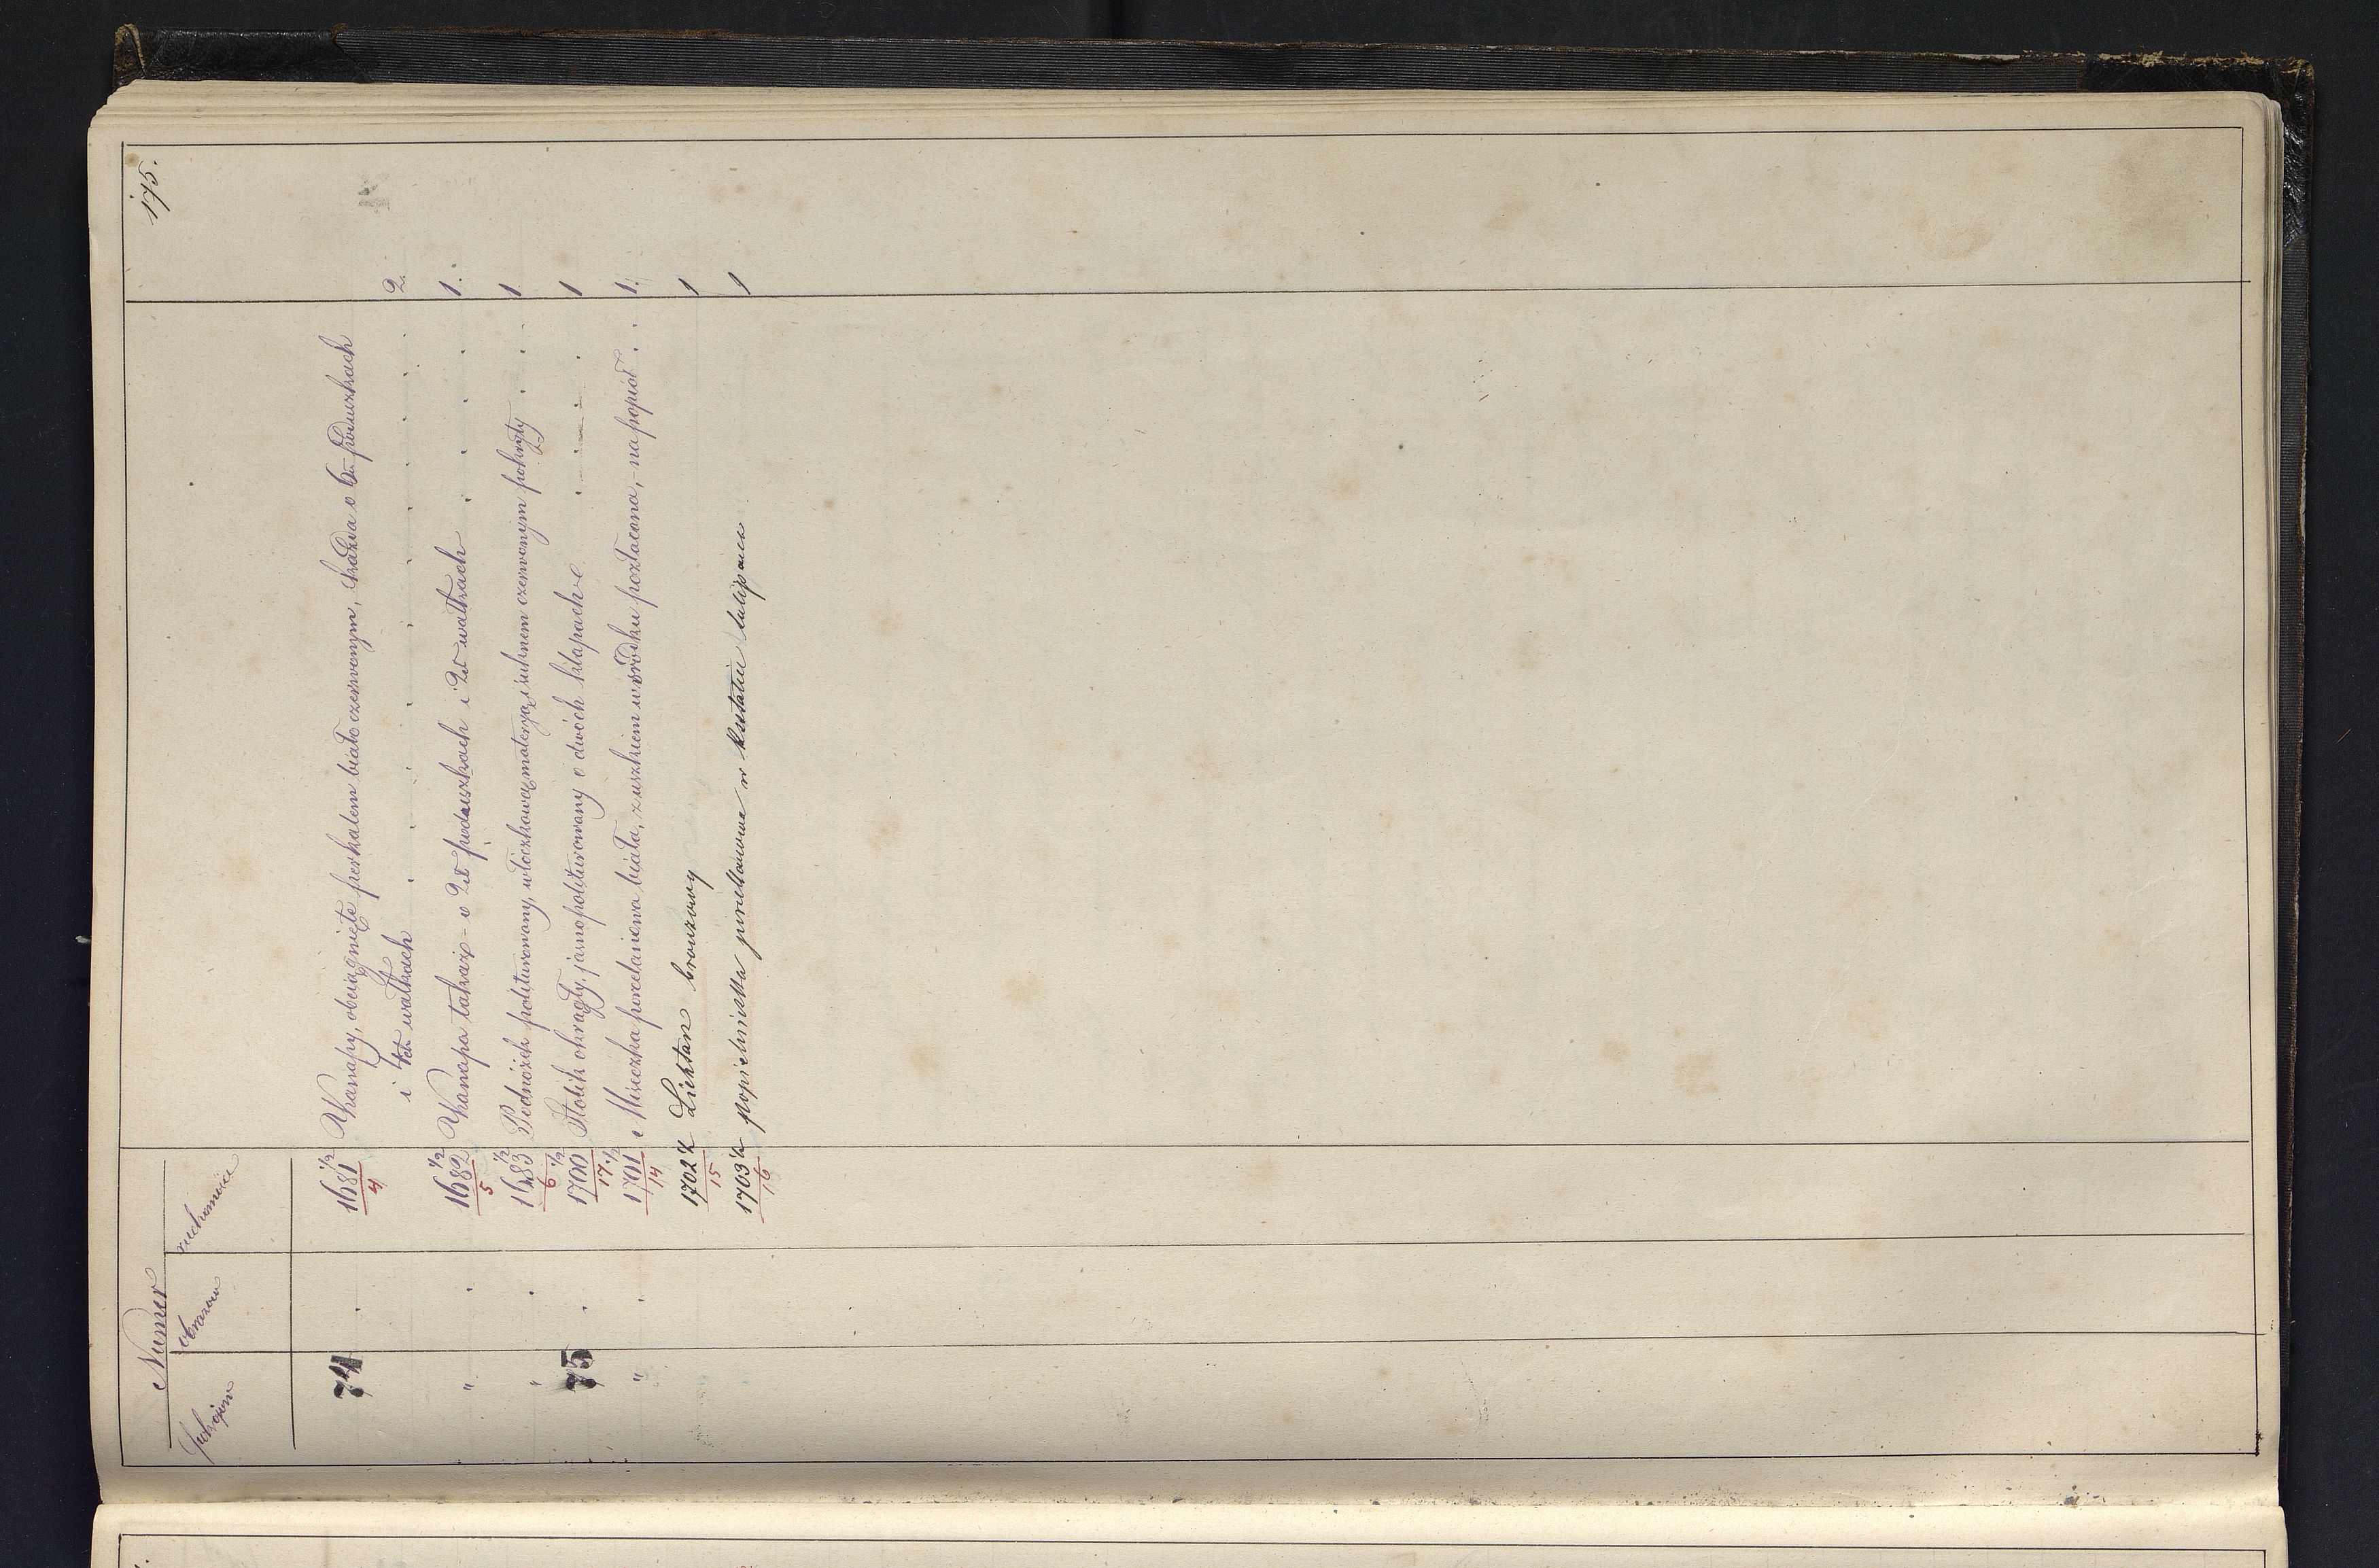 175.
Numer
pokojom
obrazow
ruchomości
74 . 1681 1/2 Kanapy, obciągnięte perkalem biało czerwonym, każda o 6u poduszkach
4
i 4ch wałkach . . . . . . . . . 2.
" . 1682 1/2 Kanapa takaż - o 2ch poduszkach i 2ch wałkach . . . . 1.
5
" . 1683 1/2 Podnóżek politurowany, włóczkową materyą i suknem czerwonym pokryty . . . 1
6
75 . 1700 1/2 Stolik okrągły, jasno politurowany o dwóch klapach . . . 1
17.
" . 1701 1/2 Miseczka porcelanowa biała, z uszkiem w środku pozłacona, - na popiół . . 1.
14
1702 1/2 Lichtarz bronzowy 1
15
1703 1/2 popielniczka porcelanowa w kształcie tulipana 1
16